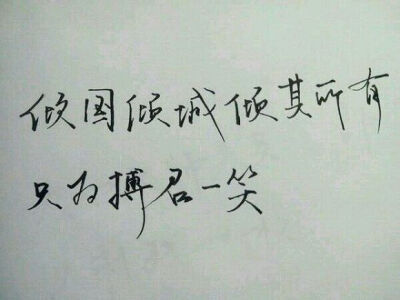 倾国倾城倾其所有
只为搏君一笑